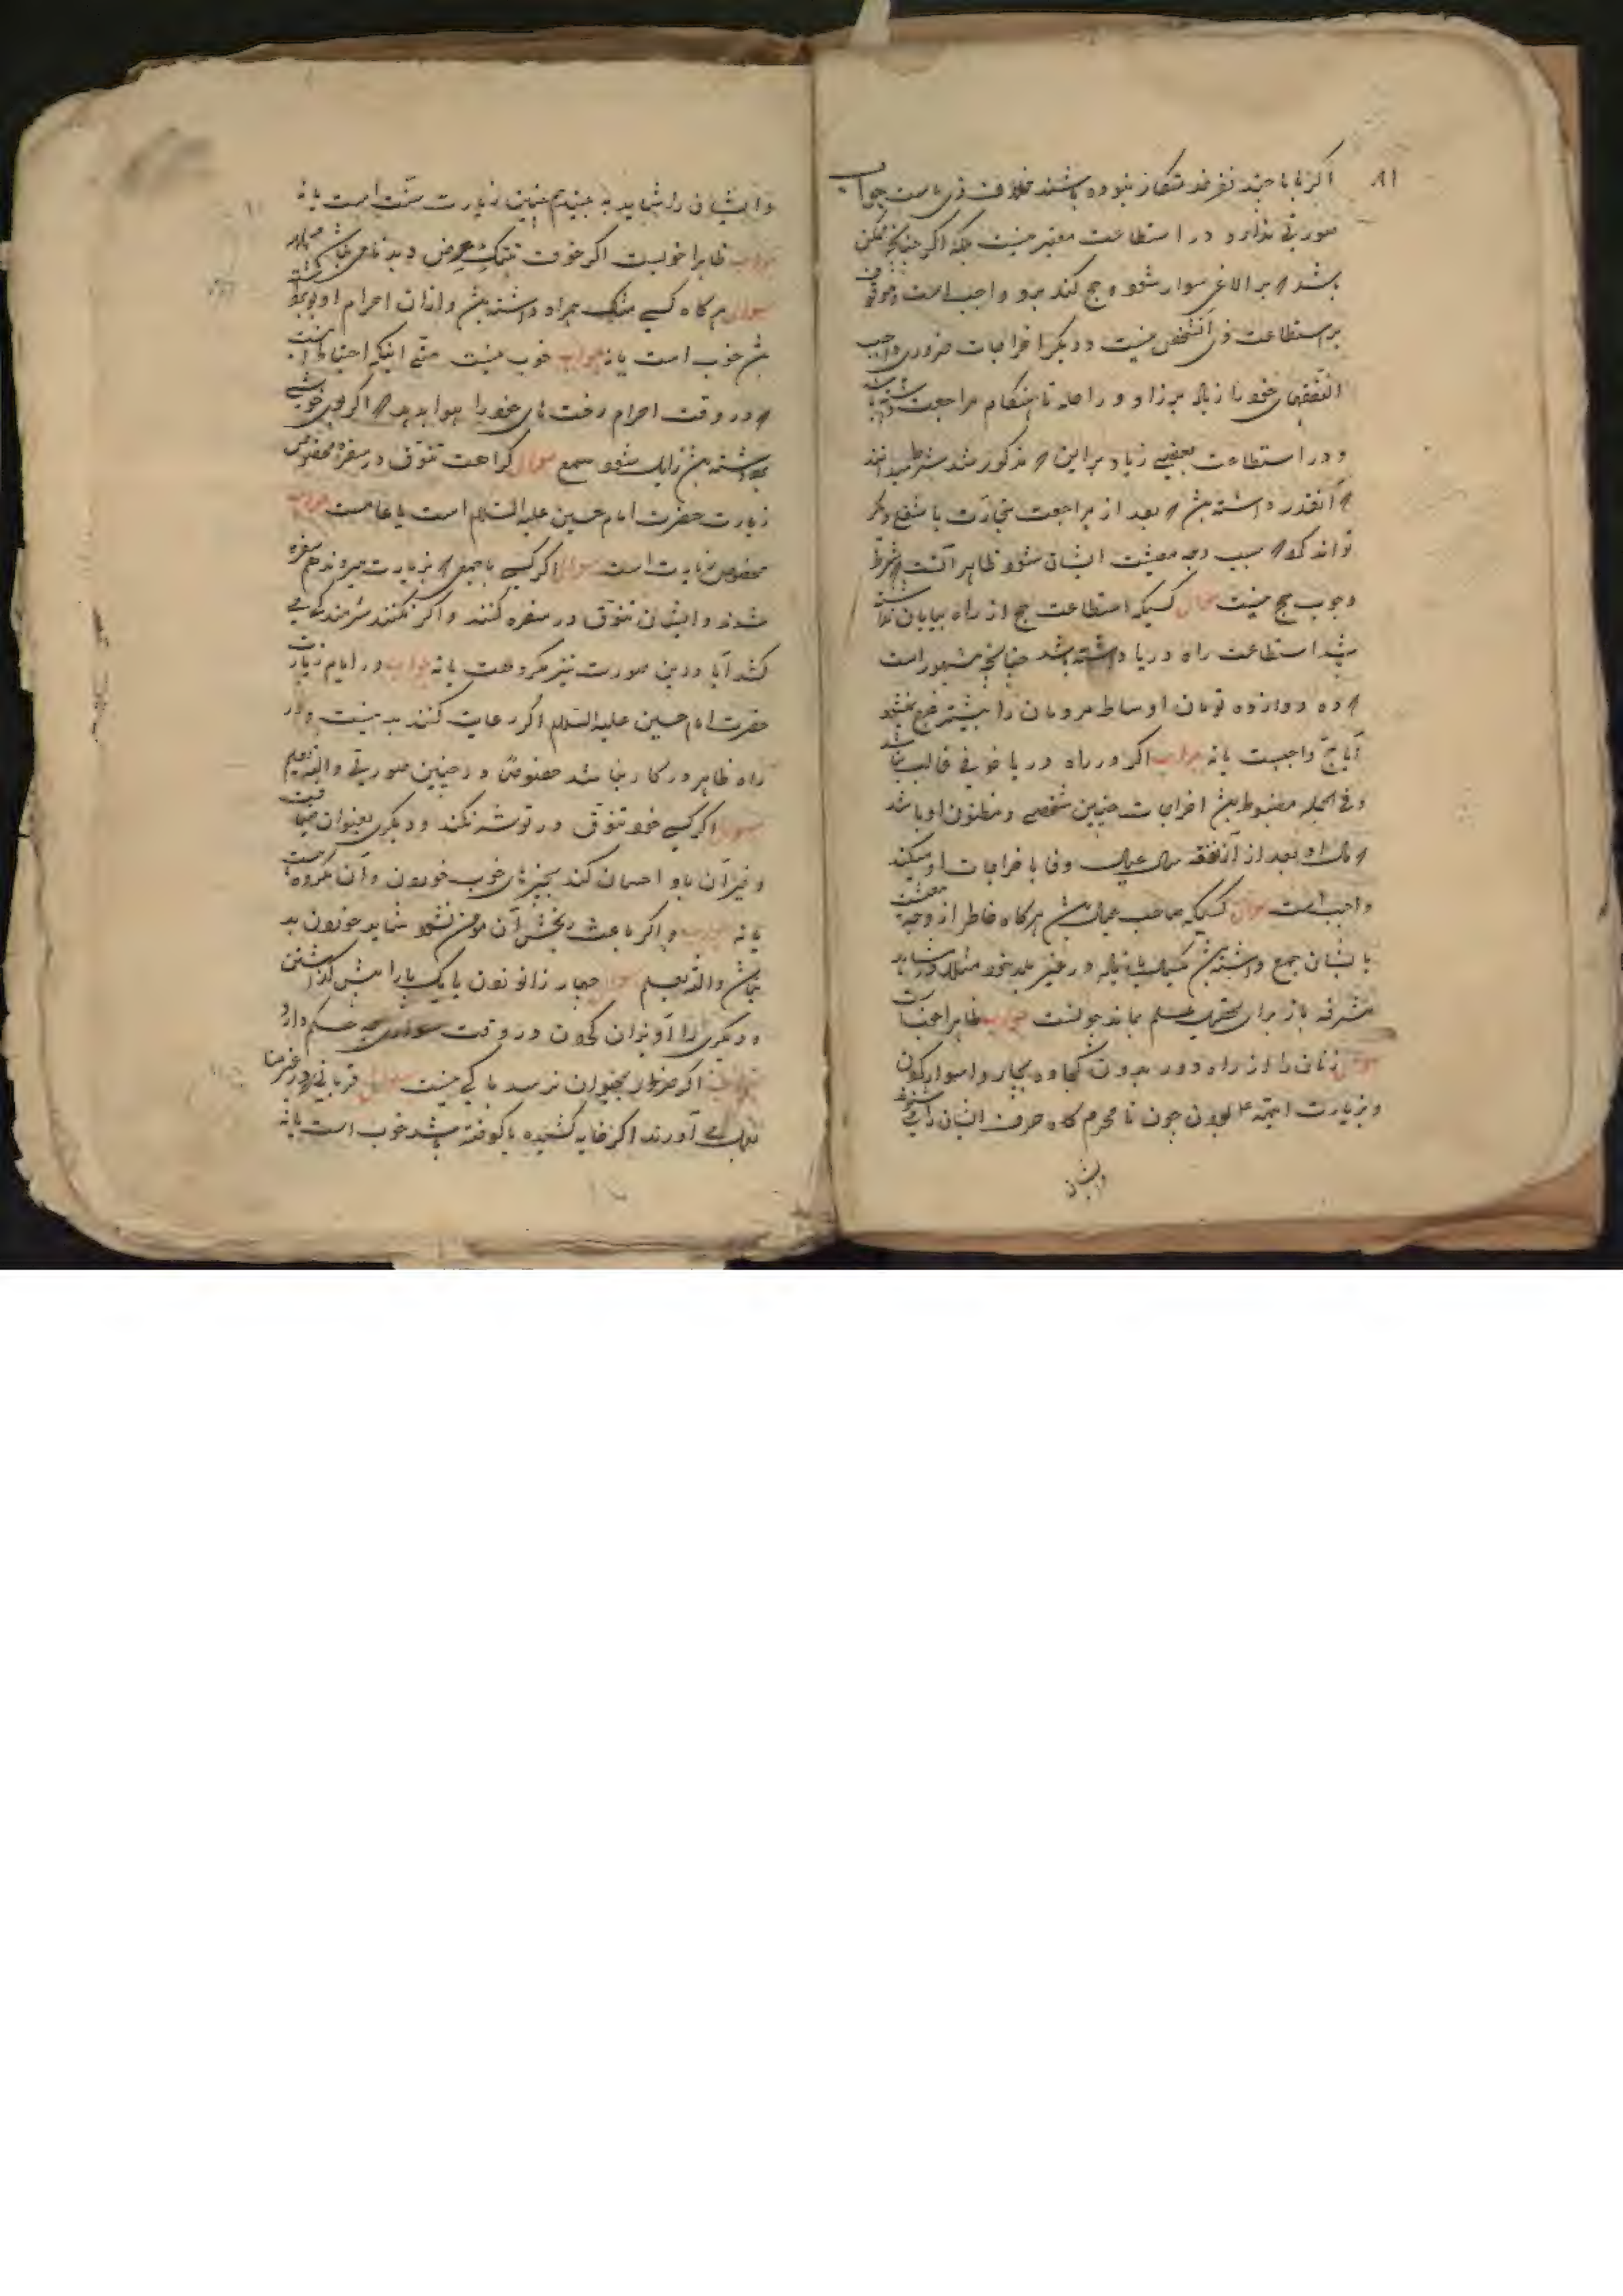 ۸۱
اگر با با چند نفر خدمتکار نبوده باشند خلاف زی ماست جواب
صورتی ندارد و در استطاعت معتبر نیست بلکه اگر چنانچه ممکن
باشد که بر الاغی سوار شود و حج کند برو واجب است و موقوف
بر استطاعت زی آنشخص نیست و دیگر اخراجات ضروری واجب
النفقهای خود را زیاد بر زاد و راحله تا هنگام مراجعت داشته باشد
و در استطاعت بعضی زیاد بر این که مذکور شد شرط میدانند
که آنقدر داشته باشد که بعد از مراجعت بتجارت یا شغع دیگر
تواند کرد که سبب وجه معیشت ایشان شود ظاهر آنست که شرط
وجوب حج نیست سؤال کسیکه استطاعت حج از راه بیابان نداشته
باشد استطاعت راه دریا داشته باشد چنانچه مشهور است
که ده دوازده تومان اوساط مردمان را بیشتر خرج نمیشود
آیا حج واجبست یا نه جواب اگر در راه دریا خوفی غالب نباشد
و فی الجمله مضبوط باشد اخراجات چنین شخصی و مظنون او باشد
که مال او بعد از نفقه عیال وفا باخراجات او میکند
واجب است سؤال کسیکه صاحب عیال باشد هرگاه خاطر از وجه معیشت
ایشان جمع داشته باشد یکسال یا زیاده در غیر بلد خود مثلا در مشاهد
مشرفه باز برای تحصیل علم بماند چونست جواب ظاهرا خوبست
سؤال زنان را از راه دور بدون کجاوه بچاروا سوار کردن
و بزیارت ائمه ع بردن چون نامحرم گاه حرف ایشان را میشنود
و ایشان
و ایشان را شاید به بیند هم چنین زیارت سنت است یا نه
جواب ظاهرا خوبست اگر خوف هتک عرض و بدنامی نباشد
سؤال هرگاه کسی مشک همراه داشته باشد و از آن احرام او بوی گرفته
باشد خوب است یا نه جواب خوب نیست حتی اینکه احتیاط آنست
که در وقت احرام رخت های خود را هوا بدهد که اگر بوی خوشی
داشته باشد زایل شود سؤال کراهت تنوق در سفره مخصوص
زیارت حضرت امام حسین علیه السلام است یا عامست جواب
مخصوص زیارت است سؤال اگر کسی با جمعی که بزیارت میروند هم سفره
شوند و ایشان تنوق در سفره کنند و اگر نکنند شرمندگی می
کشد آیا در این صورت نیز مکروهست یا نه جواب در ایام زیارت
حضرت امام حسین علیه السلام اگر رعایت کنند بد نیست و در
راه ظاهر در کار نباشد خصوصا در چنین صورتی والله یعلم
سؤال اگر کسی خود تنوق در توشه نکند و دیگری بعنوان ضیافت
و غیر آن باو احسان کند بچیزهای خوب خوردن و آن مکروه است
یا نه جواب و اگر باعث رنجش آن مؤمن نشود شاید خوردن بد
نباشد والله یعلم سؤال چهار زانو زدن یا یک پا را پیش گذاشتن
و دیگری را آویزان کردن در وقت سواری چه حکم دارد
جواب اگر ضرر بحیوان نرسد باکی نیست سؤال قربانی در غیر منا
بعمل می آورند اگر خایه کشیده یا کوفته باشد خوب است یا نه